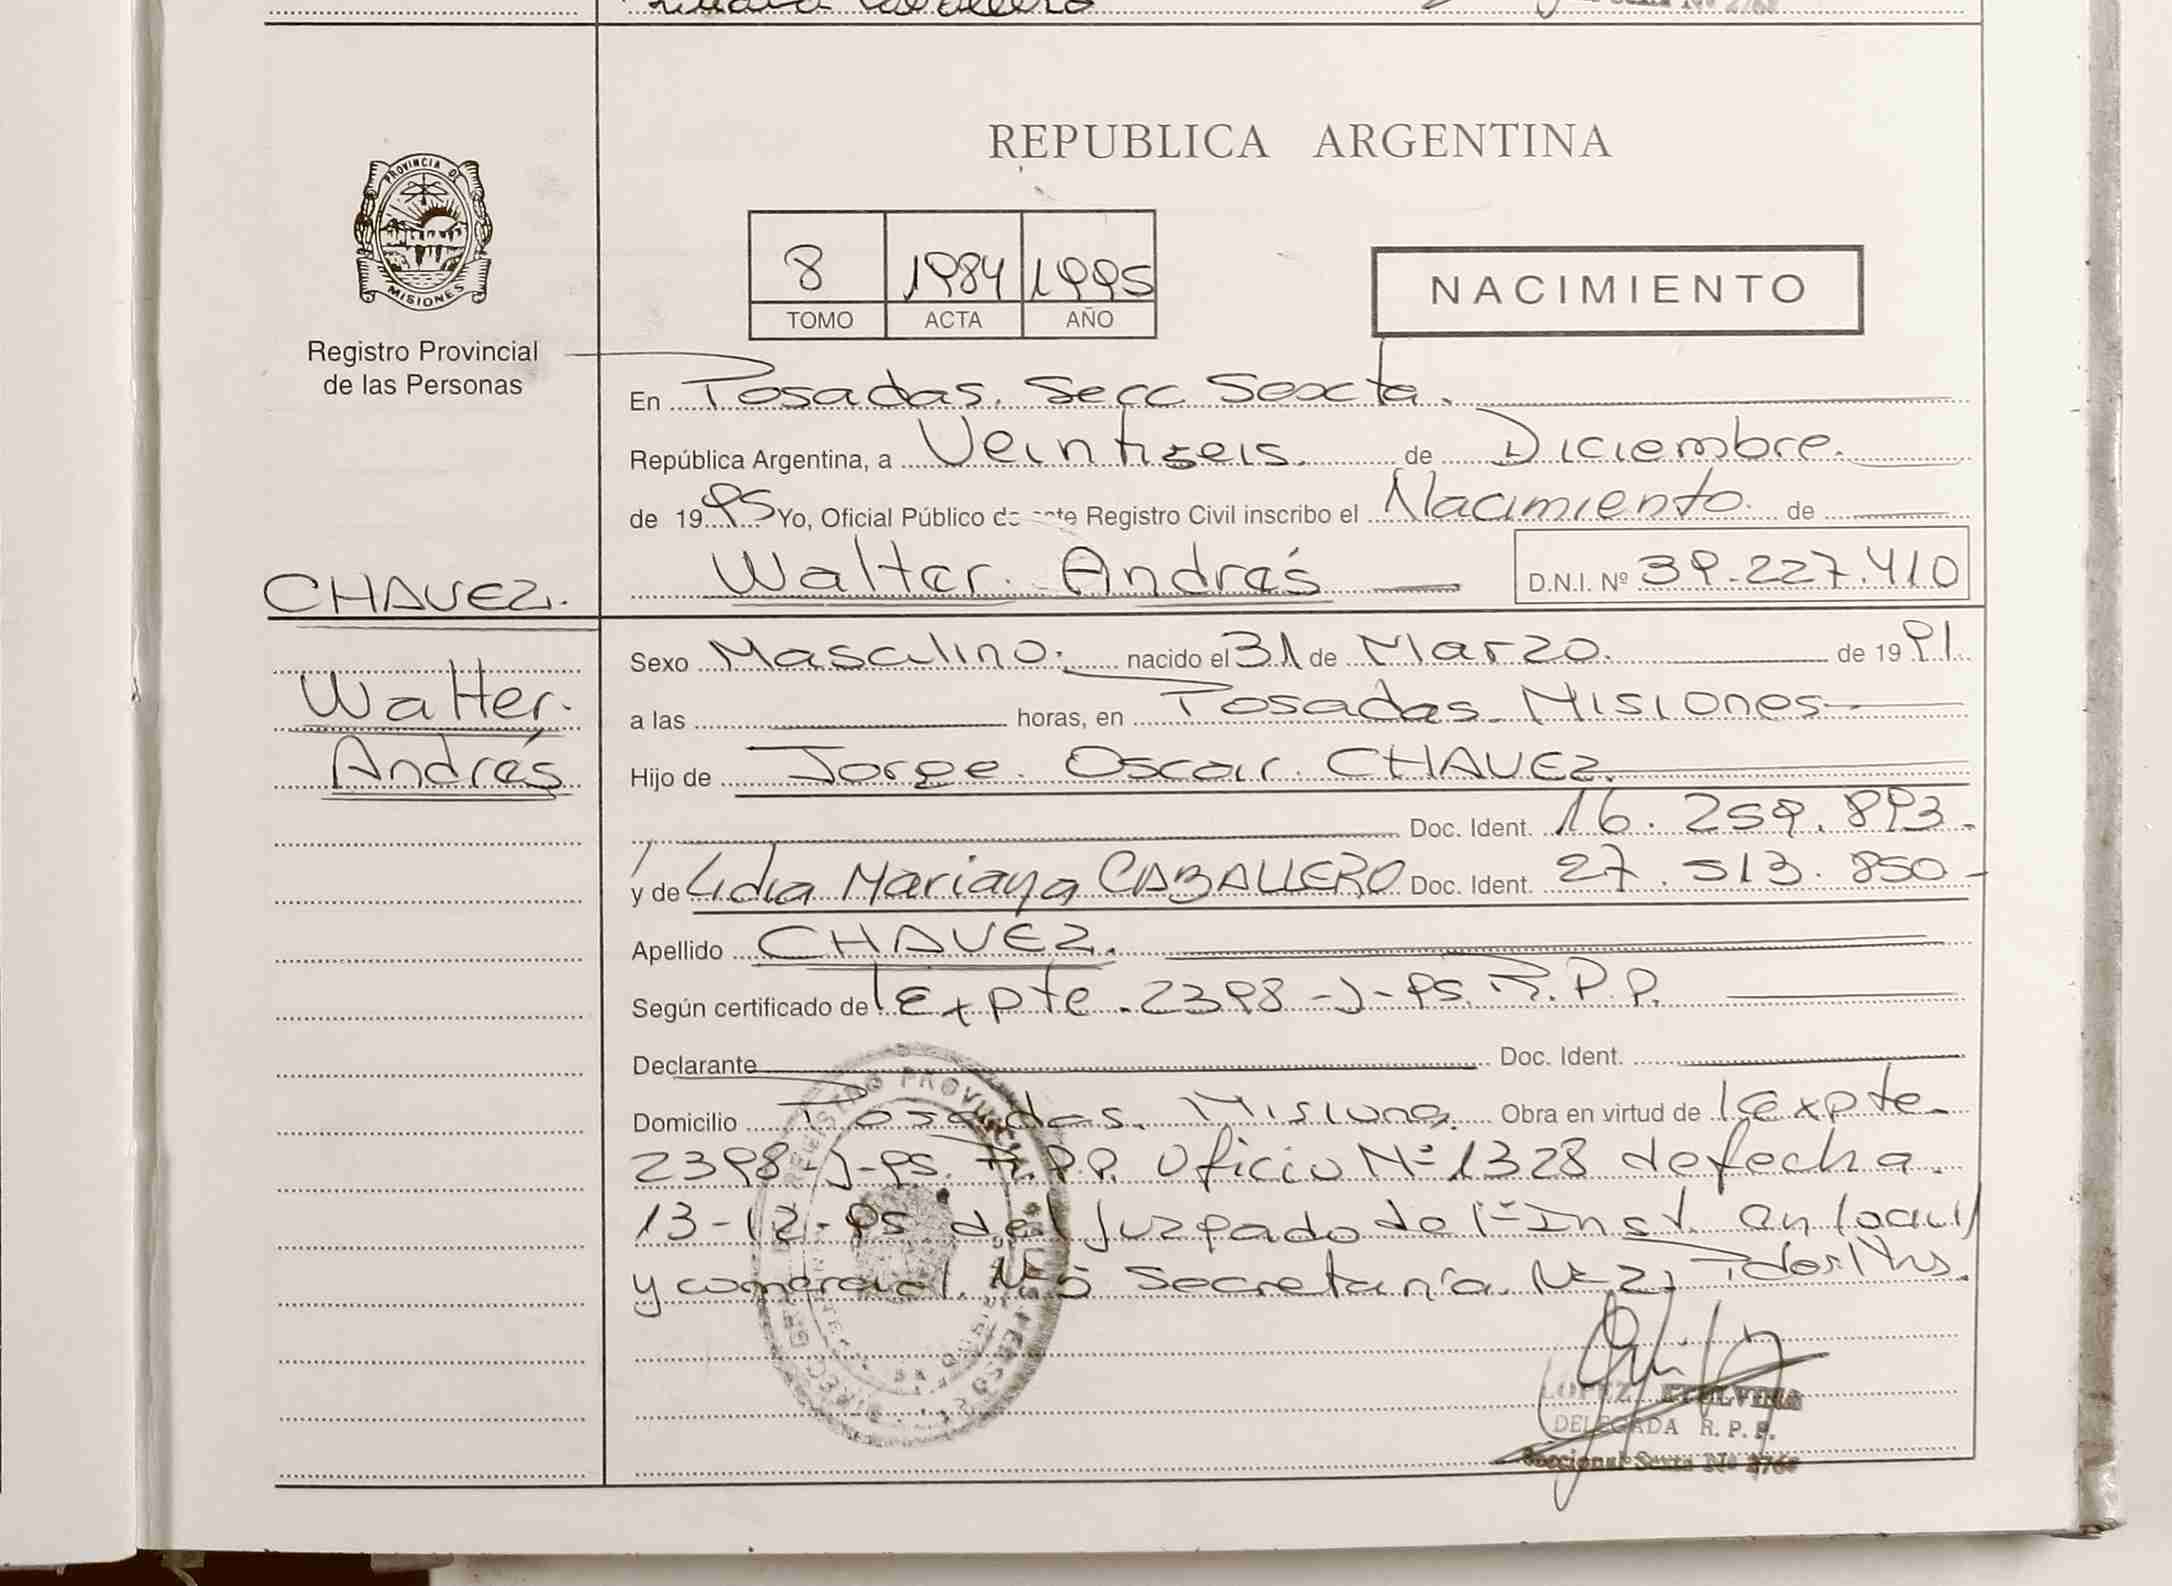 PROVINCIA DE
MISIONES
Registro Provincial
de las Personas
CHAVEZ.
Walter.
Andrés
REPUBLICA ARGENTINA
8 1984 1995
TOMO ACTA AÑO
NACIMIENTO
En Posadas. Secc Sexta.
República Argentina, a Veintiseis. de Diciembre.
de 1995 Yo, Oficial Público de este Registro Civil inscribo el Nacimiento. de
Walter. Andrés D.N.I. Nº 39.227.410
Sexo Masculino. nacido el 31 de Marzo. de 1991.
a las horas, en Posadas. Misiones
Hijo de Jorge. Oscar. CHAVEZ.
Doc. Ident. 16.259.893.
y de Lidia Mariana CABALLERO Doc. Ident. 27.513.850-
Apellido CHAVEZ.
Según certificado de Expte. 2398-J-95. R.P.P.
Declarante Doc. Ident.
Domicilio Posadas. Misiones. Obra en virtud de Expte.
2398-J-95. R.P.P. Oficio Nº 1328 de fecha.
13-12-95 del Juzgado de 1ª Inst. en lo civil
y comercial. Nº 5 Secretaría. Nº 2,
REGISTRO PROVINCIAL
LOPEZ ETELVINA
DELEGADA R.P.P.
Seccional Sexta Nº